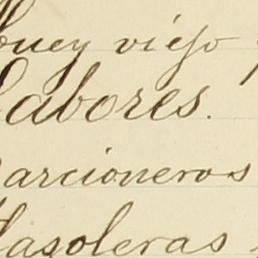 Buey viejo
Labores.
Parcioneros
Masoleras